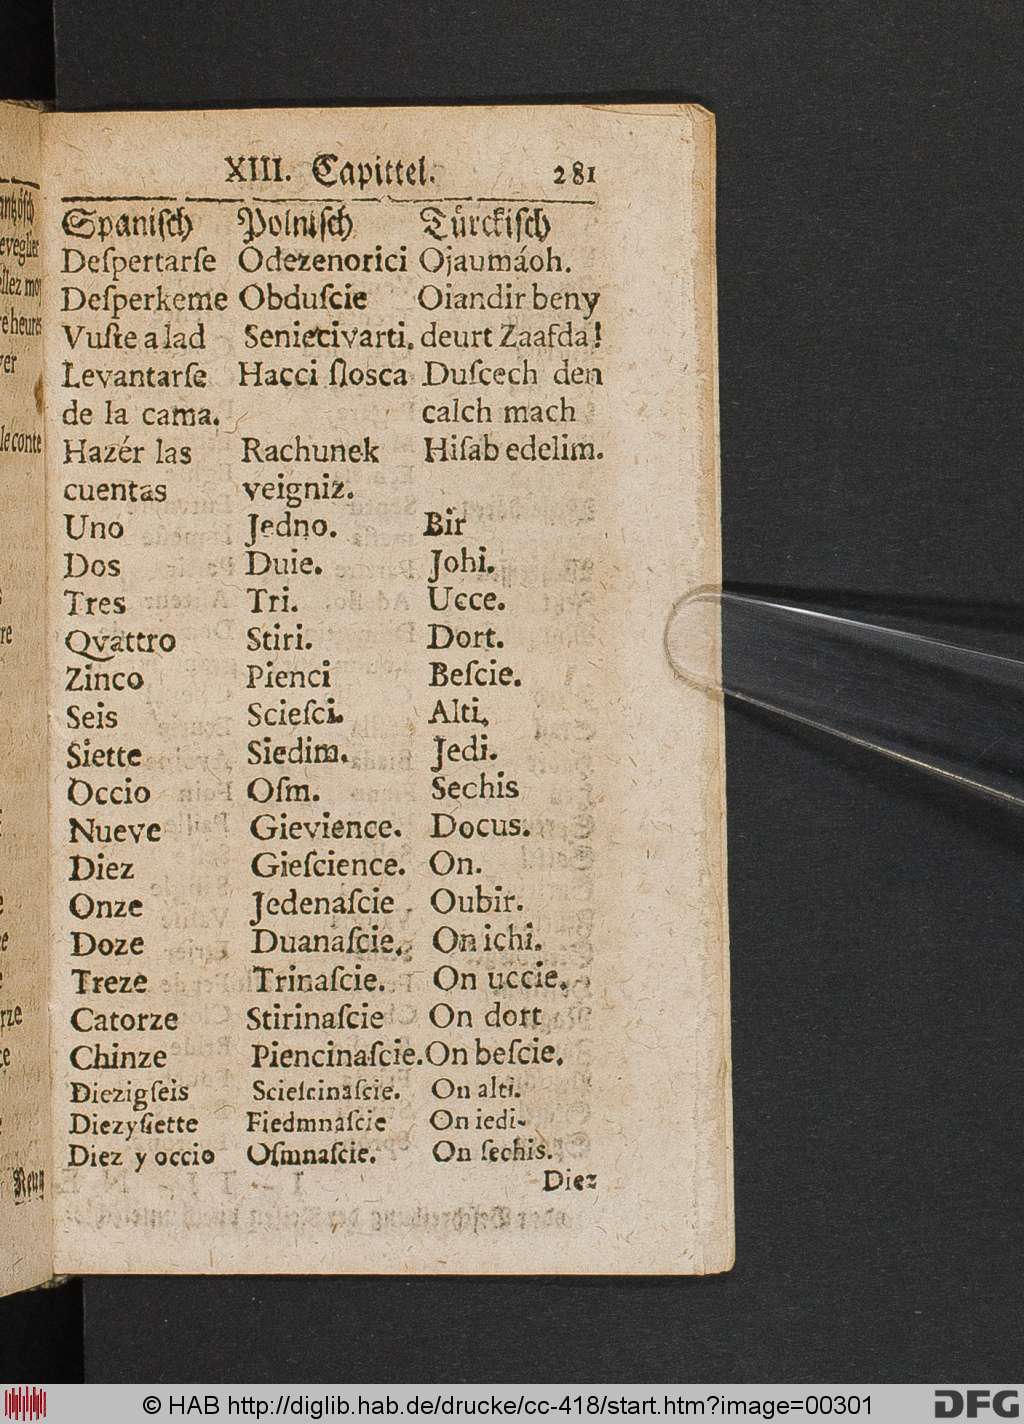 XIII. Capittel. 281
Spanisch Polnisch Türckisch
Deſpertarſe Odezenorici Ojaumáoh.
Deſperkeme Obduſcie Oiandir beny
Vuſte a lad Seniecivarti. deurt Zaafda!
Levantarſe Hacci ſlosca Duſcech den
de la cama. calch mach
Hazér las Rachunek Hiſab edelim.
cuentas veigniz.
Uno Jedno. Bir
Dos Duie. Johi.
Tres Tri. Ucce.
Qvattro Stiri. Dort.
Zinco Pienci Beſcie.
Seis Scieſci. Alti.
Siette Siedim. Jedi.
Occio Oſm. Sechis
Nueve Gievience. Docus.
Diez Gieſcience. On.
Onze Jedenaſcie Oubir.
Doze Duanaſcie. On ichi.
Treze Trinaſcie. On uccie.
Catorze Stirinaſcie On dort
Chinze Piencinaſcie. On beſcie.
Diezigſeis Scieſcinaſcie. On alti.
Diezyſiette Fiedmnaſcie On iedi-
Diez y occio Oſmnaſcie. On ſechis.
Diez
© HAB http://diglib.hab.de/drucke/cc-418/start.htm?image=00301 DFG